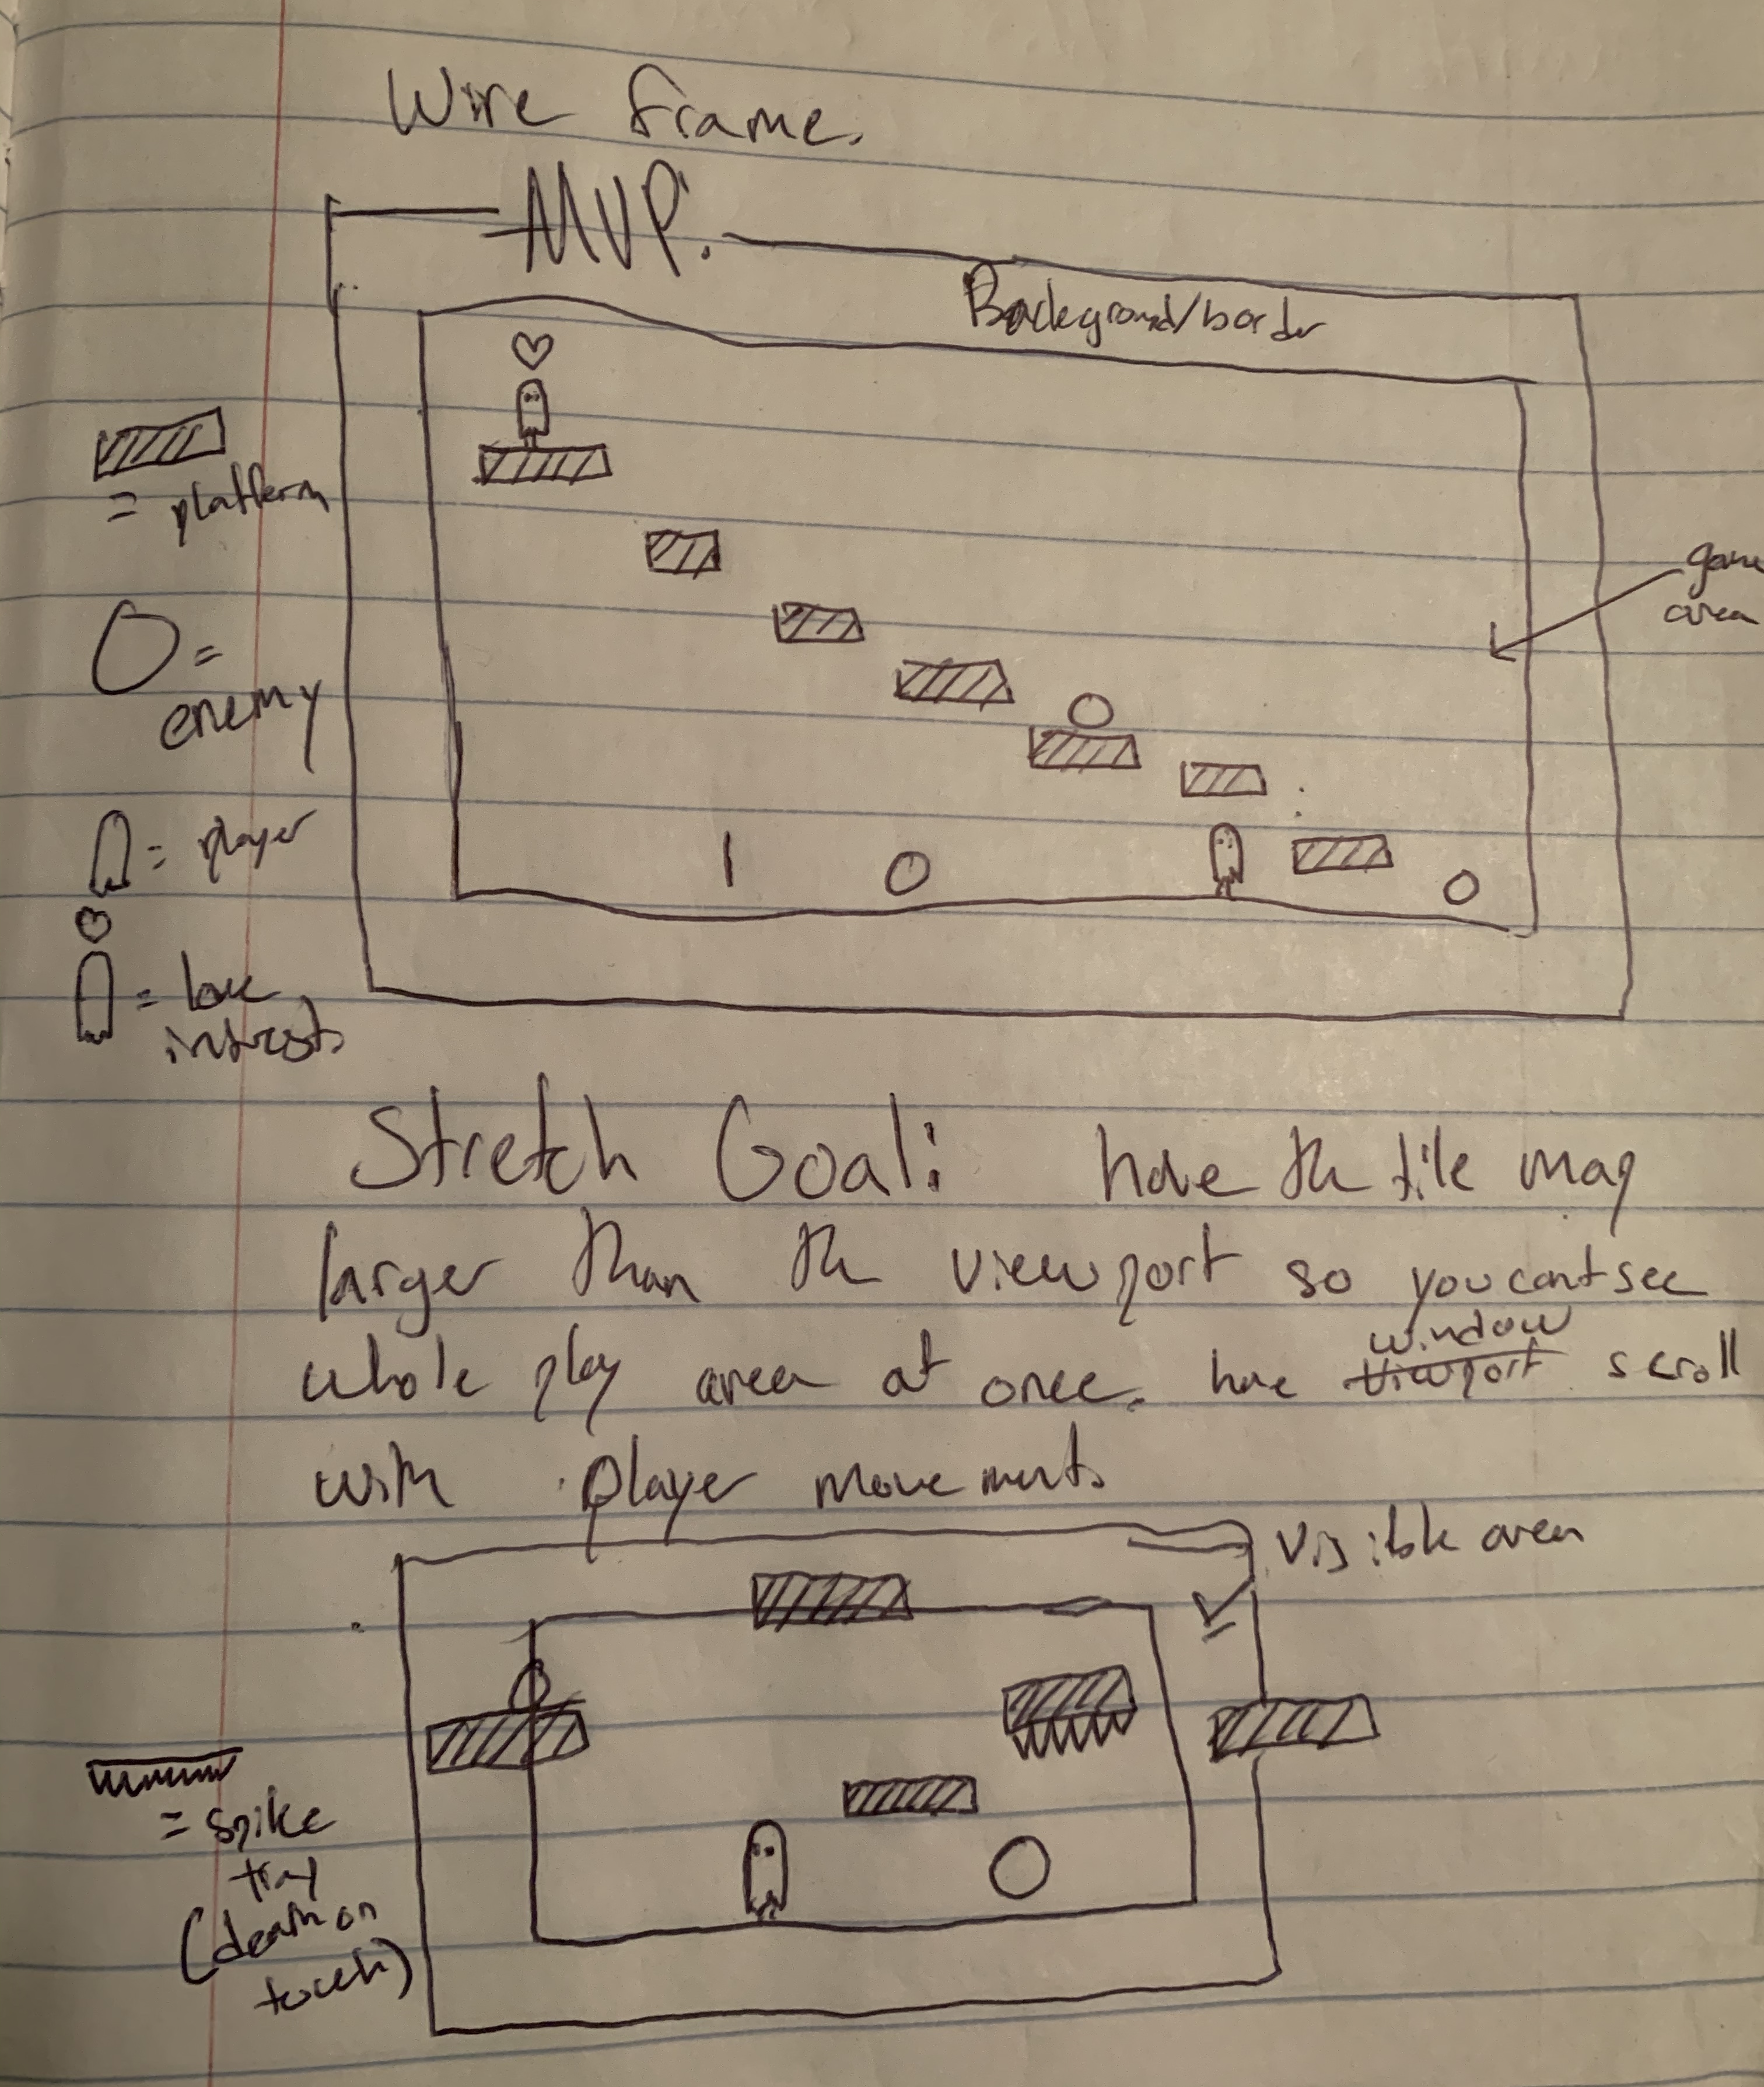 Wire frame.
MVP.
Background/border
= platform
game
area
O =
enemy
= player
= love
intrest.
Stretch Goal: have the tile map
larger than the viewport so you cant see
whole play area at once. have window viewport scroll
with player movement.
visible area
= spike
tray
(death on
touch)